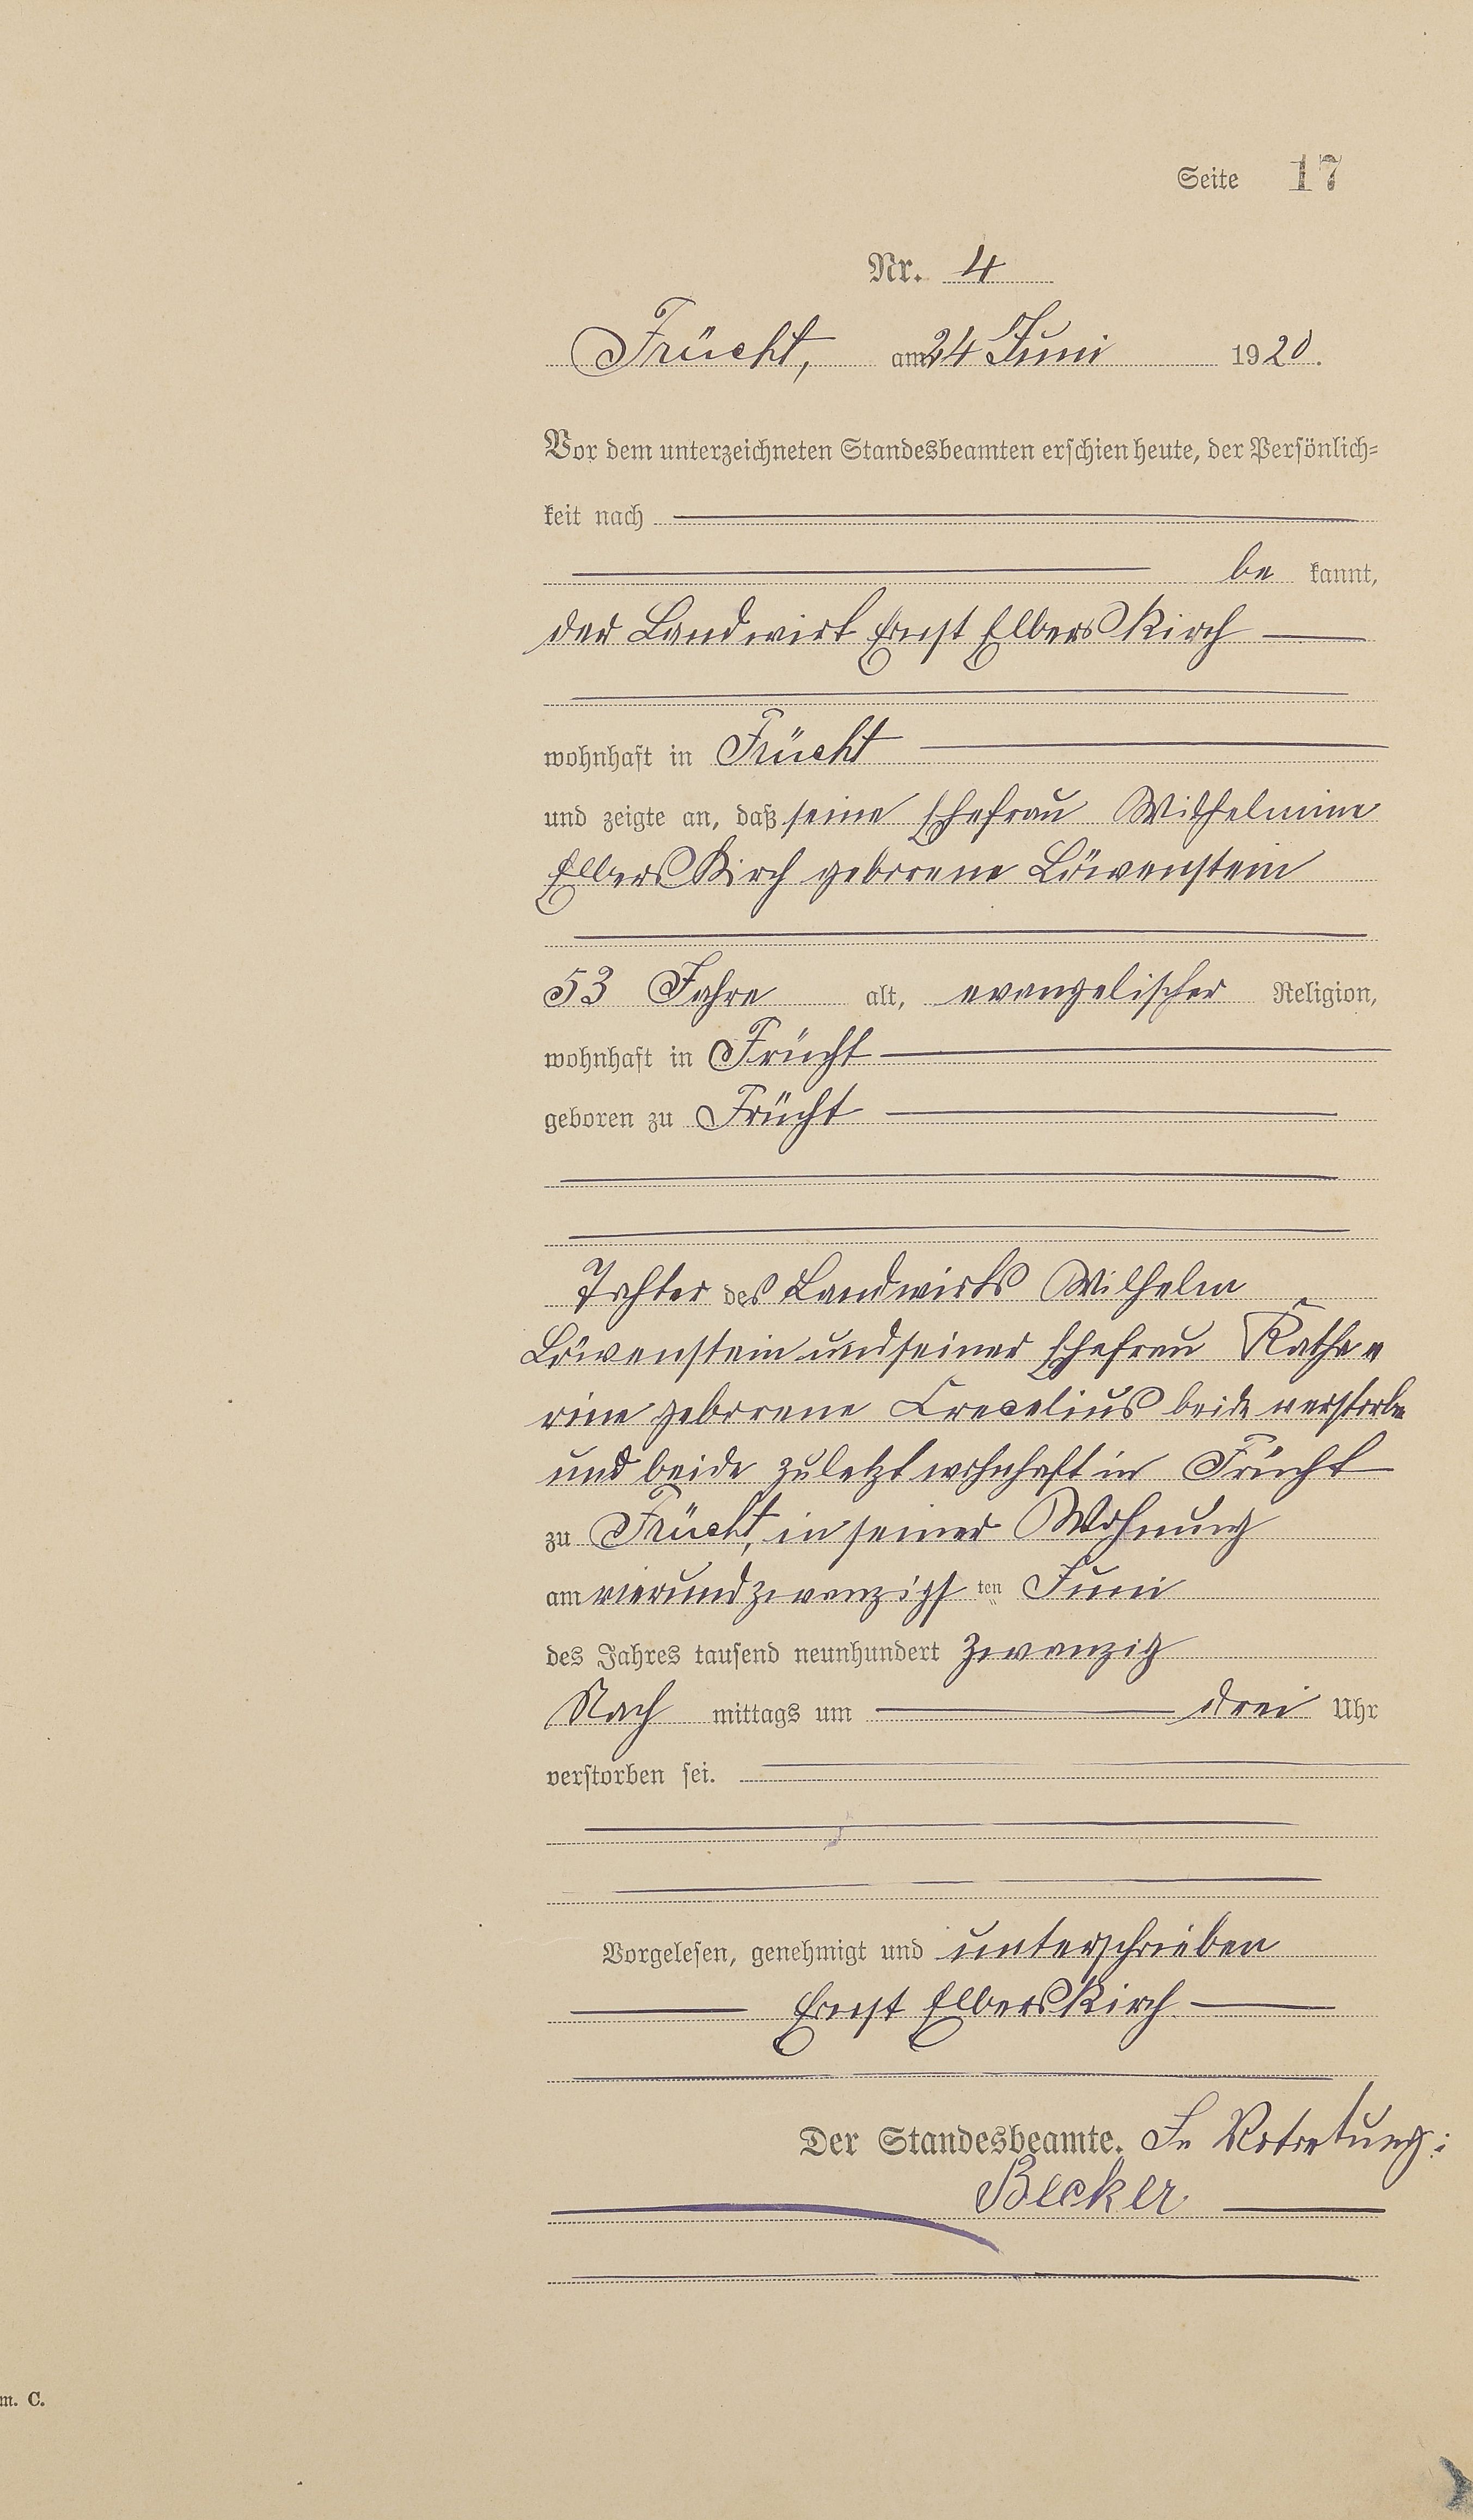 Seite 17
Nr. 4
Frücht, am 24 Juni 1920.
Vor dem unterzeichneten Standesbeamten erschien heute, der Persönlich=
keit nach
be kannt,
der Landwirt Ernst Elbers Kirch
wohnhaft in Frücht
und zeigte an, daß seine Ehefrau Wilhelmine
Elbers Kirch geborene Löwenstein
53 Jahre alt, evangelischer Religion,
wohnhaft in Frücht
geboren zu Frücht
Tochter des Landwirts Wilhelm
Löwenstein und seiner Ehefrau Katha=
rine geborene Crecelius beide verstorben
und beide zuletzt wohnhaft in Frücht
zu Frücht, in seiner Wohnung
am vierundzwanzigsten Juni
des Jahres tausend neunhundert zwanzig
Nach mittags um drei Uhr
verstorben sei.
Vorgelesen, genehmigt und unterschrieben
Ernst Elbers Kirch
Der Standesbeamte. In Vertretung:
Becker
m. C.